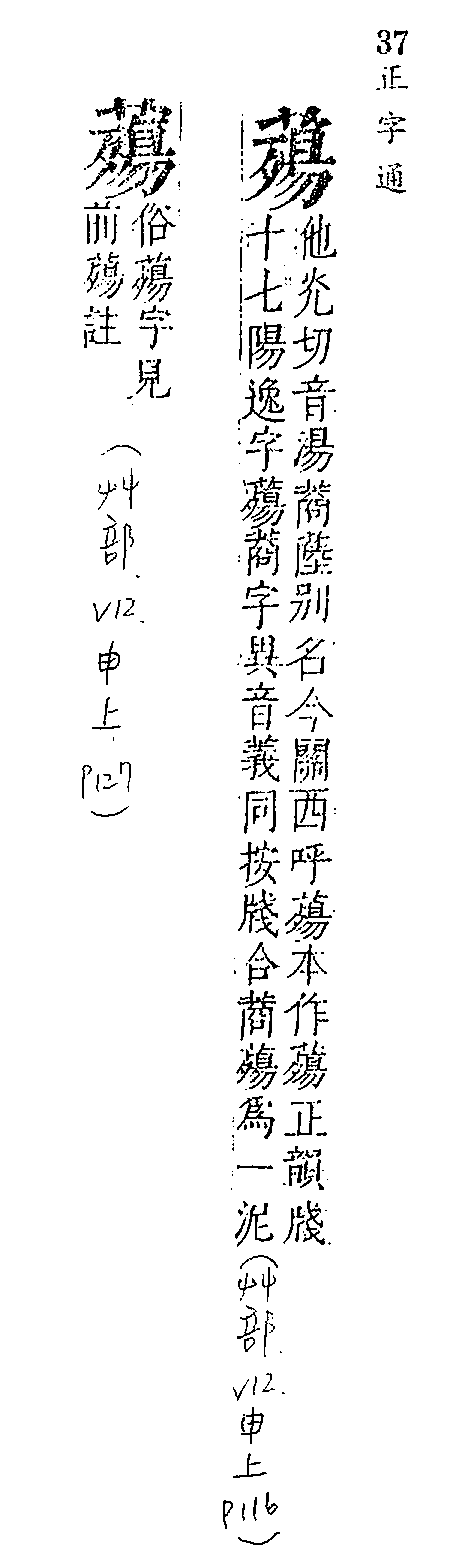 37
正字通
薚
他光切音湯蔏陸別名今關西呼薚本作薚正韻牋
十七陽逸字薚蔏字異音義同按牋合蔏薚為一泥
(艸部. V12. 申上 P116)
俗薚字見
前薚註
(艸部. V12. 申上. P127)